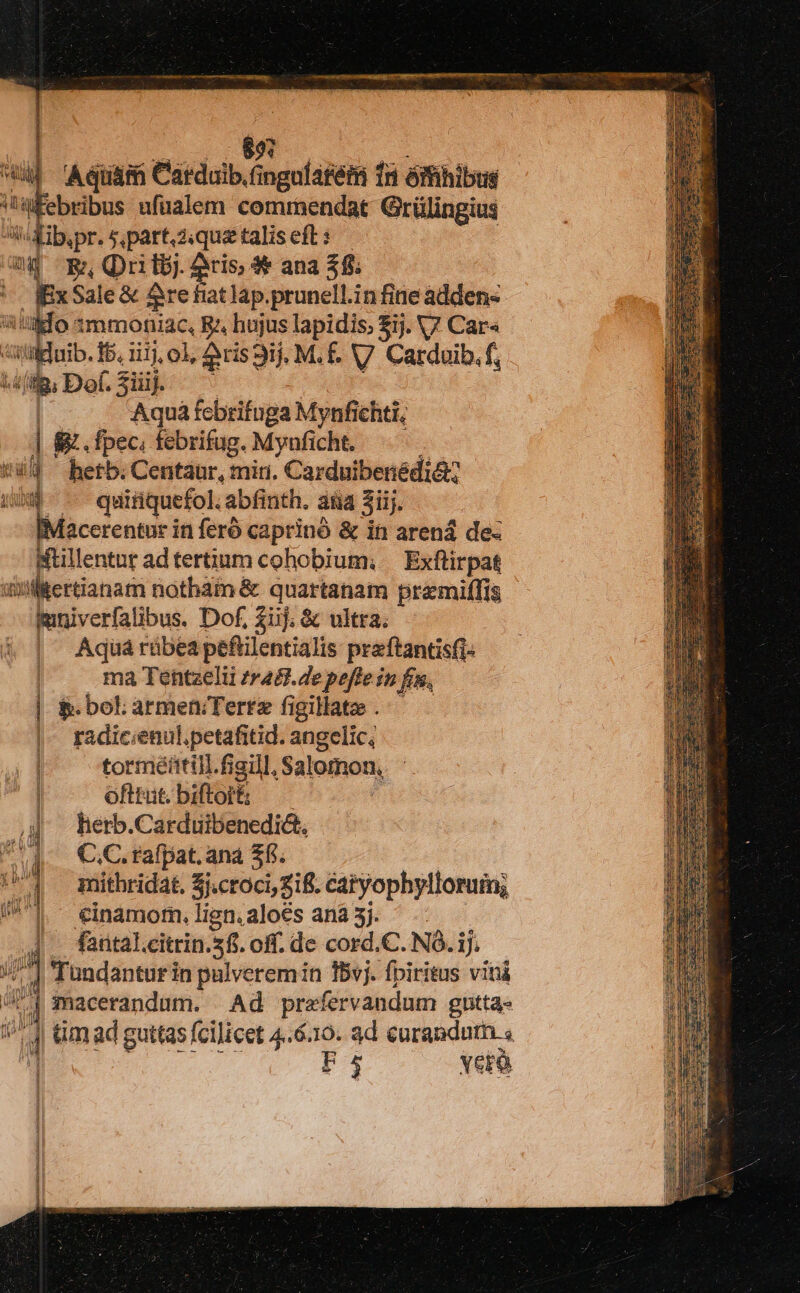 89
Aquam Carduib. singularem in omnibus
febribus usualem commendat Grülingius
lib. pr. 5. part. 2. quæ talis est :
℞. ri ℔j. ris, ana ℥ß.
Ex Sale & re fiat lap. prunell. in fine adden-
do ammoniac, ℞. hujus lapidis, ℥ij. Car-
duib. ℔. iiij. ol. ris ℈ij. M. f. Carduib. f.
Dos. ℥iiij.
Aqua febrifuga Mynsichti,
℞. spec. febrifug. Mynsicht.
herb. Centaur. min. Carduibenedict.
quinquefol. absinth. ana ℥iij.
Macerentur in serò caprinò & in arenâ de-
stillentur ad tertium cohobium. Exstirpat
tertianam notham & quartanam præmissis
universalibus. Dos. ℥iij. & ultra.
Aqua rubea pestilentialis præstantissi-
ma Tentzelii tract. de peste in fin.
℞. bol. armen. Terræ sigillatæ .
radic. enul. petasitid. angelic.
tormentill. sigill. Salomon.
ostrut. bistort.
herb. Carduibenedict.
C.C. raspat. ana ℥ß.
mithridat. ℥j. croci, ℥iß. caryophyllorum,
cinamom. lign. aloës ana ʒj.
santal. citrin. ʒß. oss. de cord. C. Nô. ij.
Tundantur in pulverem in ℔vj. spiritus vini
macerandum. Ad præservandum gutta-
tim ad guttas scilicet 4. 6. 10. ad curandum
F 5 verò